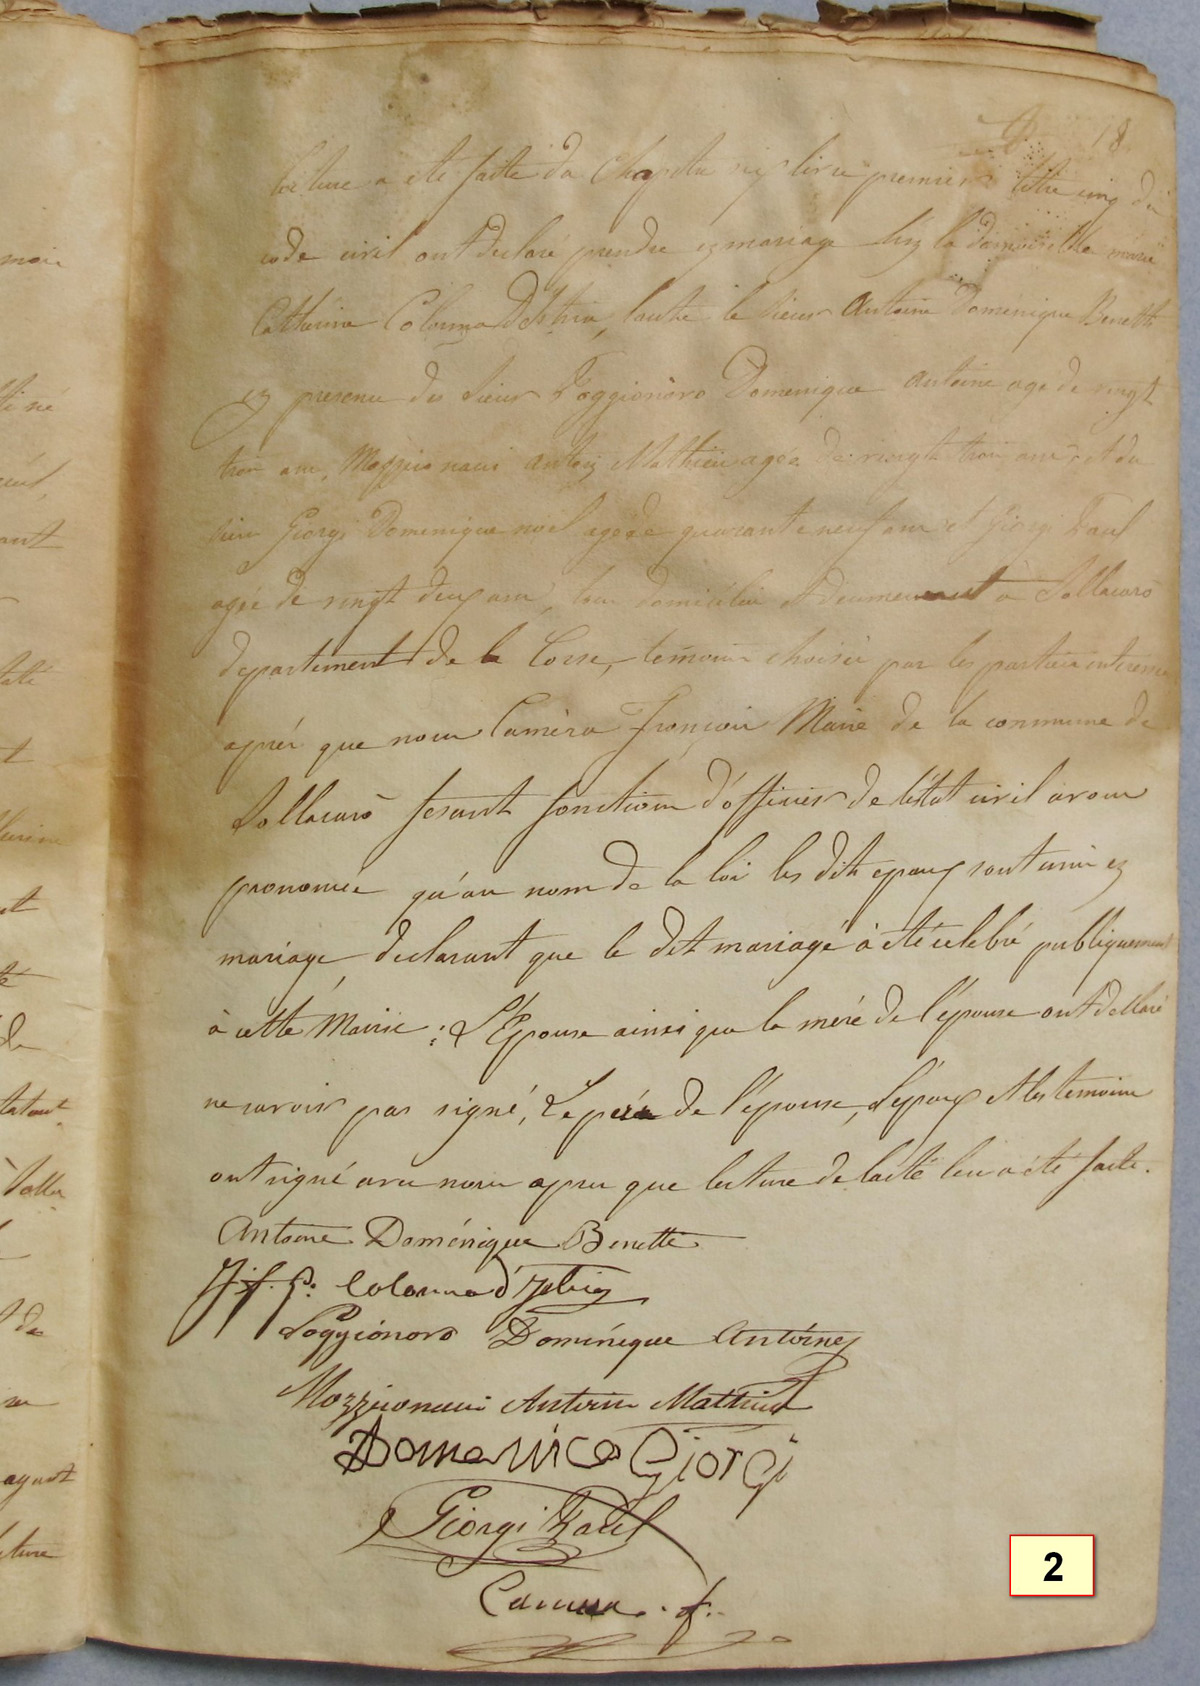 18
lecture a été faite du Chapitre six livre premier titre cinq du
code civil ont declaré prendre en mariage la demoiselle marie
Catherine Colonna D'Istria, l'autre le sieur Antoine Domenique Benetti
en presence des sieur Poggionovo Domenique Antoine age de vingt
trois ans, Mozziconacci Antoin Mathieu agée de vingt trois ans, et du
sieur Giorgi Domenique noël agé de quarante neuf ans et Giorgi Paul
agée de vingt deux ans, tous domiciliés et deumeurant à Sollacarò
departement de la Corse, temoins choisis par les parties interessés
aprés que nous Caméra François Maire de la commune de
Sollacarò fesant fonctions d'officier de l'état civil avons
prononcée qu'au nom de la loi les dits epoux sont unis en
mariage, declarant que le dit mariagé à été célebré publiquement
à cétte Mairie : L'Epouse ainsi que la méré de l'épouse ont declaré
ne savoir pas signé, Le pére de l'épouse, L'époux et les temoins
ont signé avec nous apres que lecture de l'acté leur a été faite.
Antoine Doménique Benetti
Colonna d'Istria
Poggionovo Doménique Antoine
Mozziconacci Antoine Mathieu
Domenico Giorgi
Giorgi Paul
Camera . f.
2
moi
né
ant
t
ayant
cture